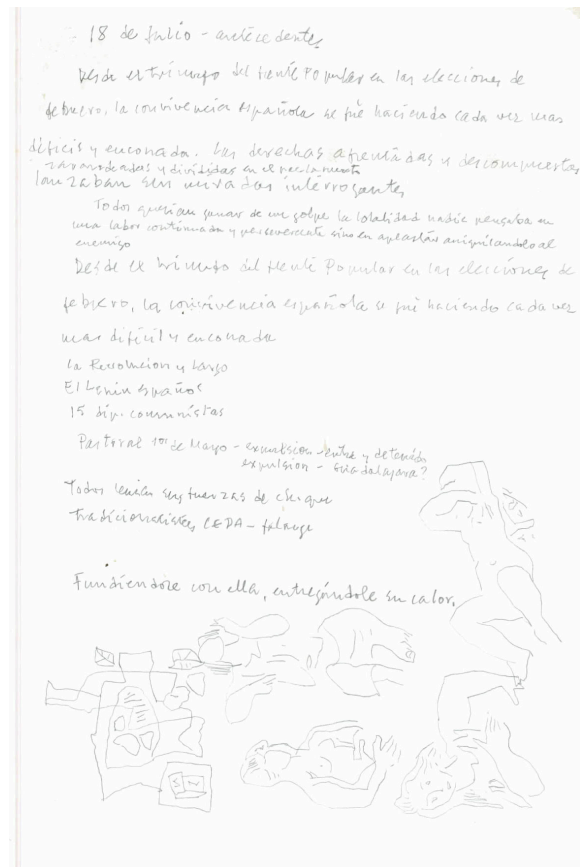 18 de Julio - antecedentes
Desde el triunfo del frente Popular en las elecciones de
febrero, la convivencia española se fué haciendo cada vez mas
difícil y enconada. Las derechas afrentadas y descompuestas
y divididas en el parlamento
lanzaban sus miradas interrogantes
Todos querian ganar de un golpe la totalidad nadie pensaba en
una labor continuada y perseverante sino en aplastar aniquilandolo al
enemigo
Desde el triunfo del frente Popular en las elecciones de
febrero, la convivencia española se fué haciendo cada vez
mas difícil y enconada
La Revolucion y Largo
El Lenin español
15 dip. communistas
Pastoral 1º de Mayo - expulsion - y detenido
expulsion - Guadalajara?
Todos tenian sus fuerzas de choque
tradicionalistas CEDA - falange
Fundiendose con ella, entregándole su calor.